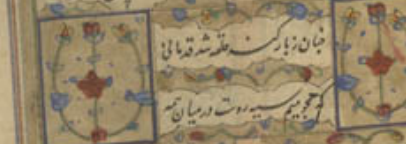 چنان ز بار گنه حلقه شد قد مانی
که همچو میم سیه روست در میان همه